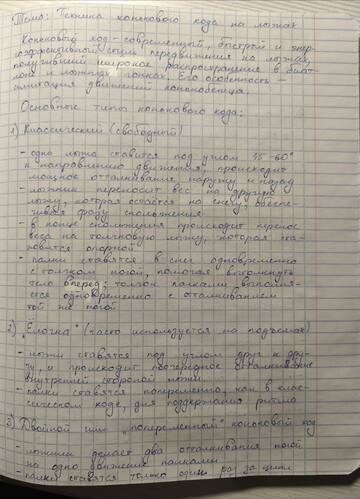 Тема: Техника конькового хода на лыжах
Коньковый ход – современный, быстрый и энер-
гоэффективный стиль передвижения на лыжах,
получивший широкое распространение в биат-
лоне и лыжных гонках. Его особенность –
имитация движений конькобежца.
Основные типы конькового хода:
1) Классический (свободный)
- одна лыжа ставится под углом 45-60°
к направлению движения; происходит
мощное отталкивание наружу и назад
- лыжник переносит вес на другую
лыжу, которая остаётся на снегу, обеспе-
чивая фазу скольжения
- в конце скольжения происходит перенос
веса на толчковую лыжу, которая ста-
новится опорной
- палки ставятся в снег одновременно
с толчком ногой, помогая вытолкнуть
тело вперёд; толчок палками выполня-
ется одновременно с отталкиванием
той же ногой
2) „Ёлочка“ (часто используется на подъёмах)
- лыжи ставятся под углом друг к дру-
гу, и происходит поочередное отталкивание
внутренней стороной лыжи
- палки ставятся попеременно, как в клас-
сическом ходе, для поддержания ритма
3) Двойной или „попеременный“ коньковый ход
- лыжник делает два отталкивания ногой
на одно движение палками
- палки ставятся только один раз за цикл